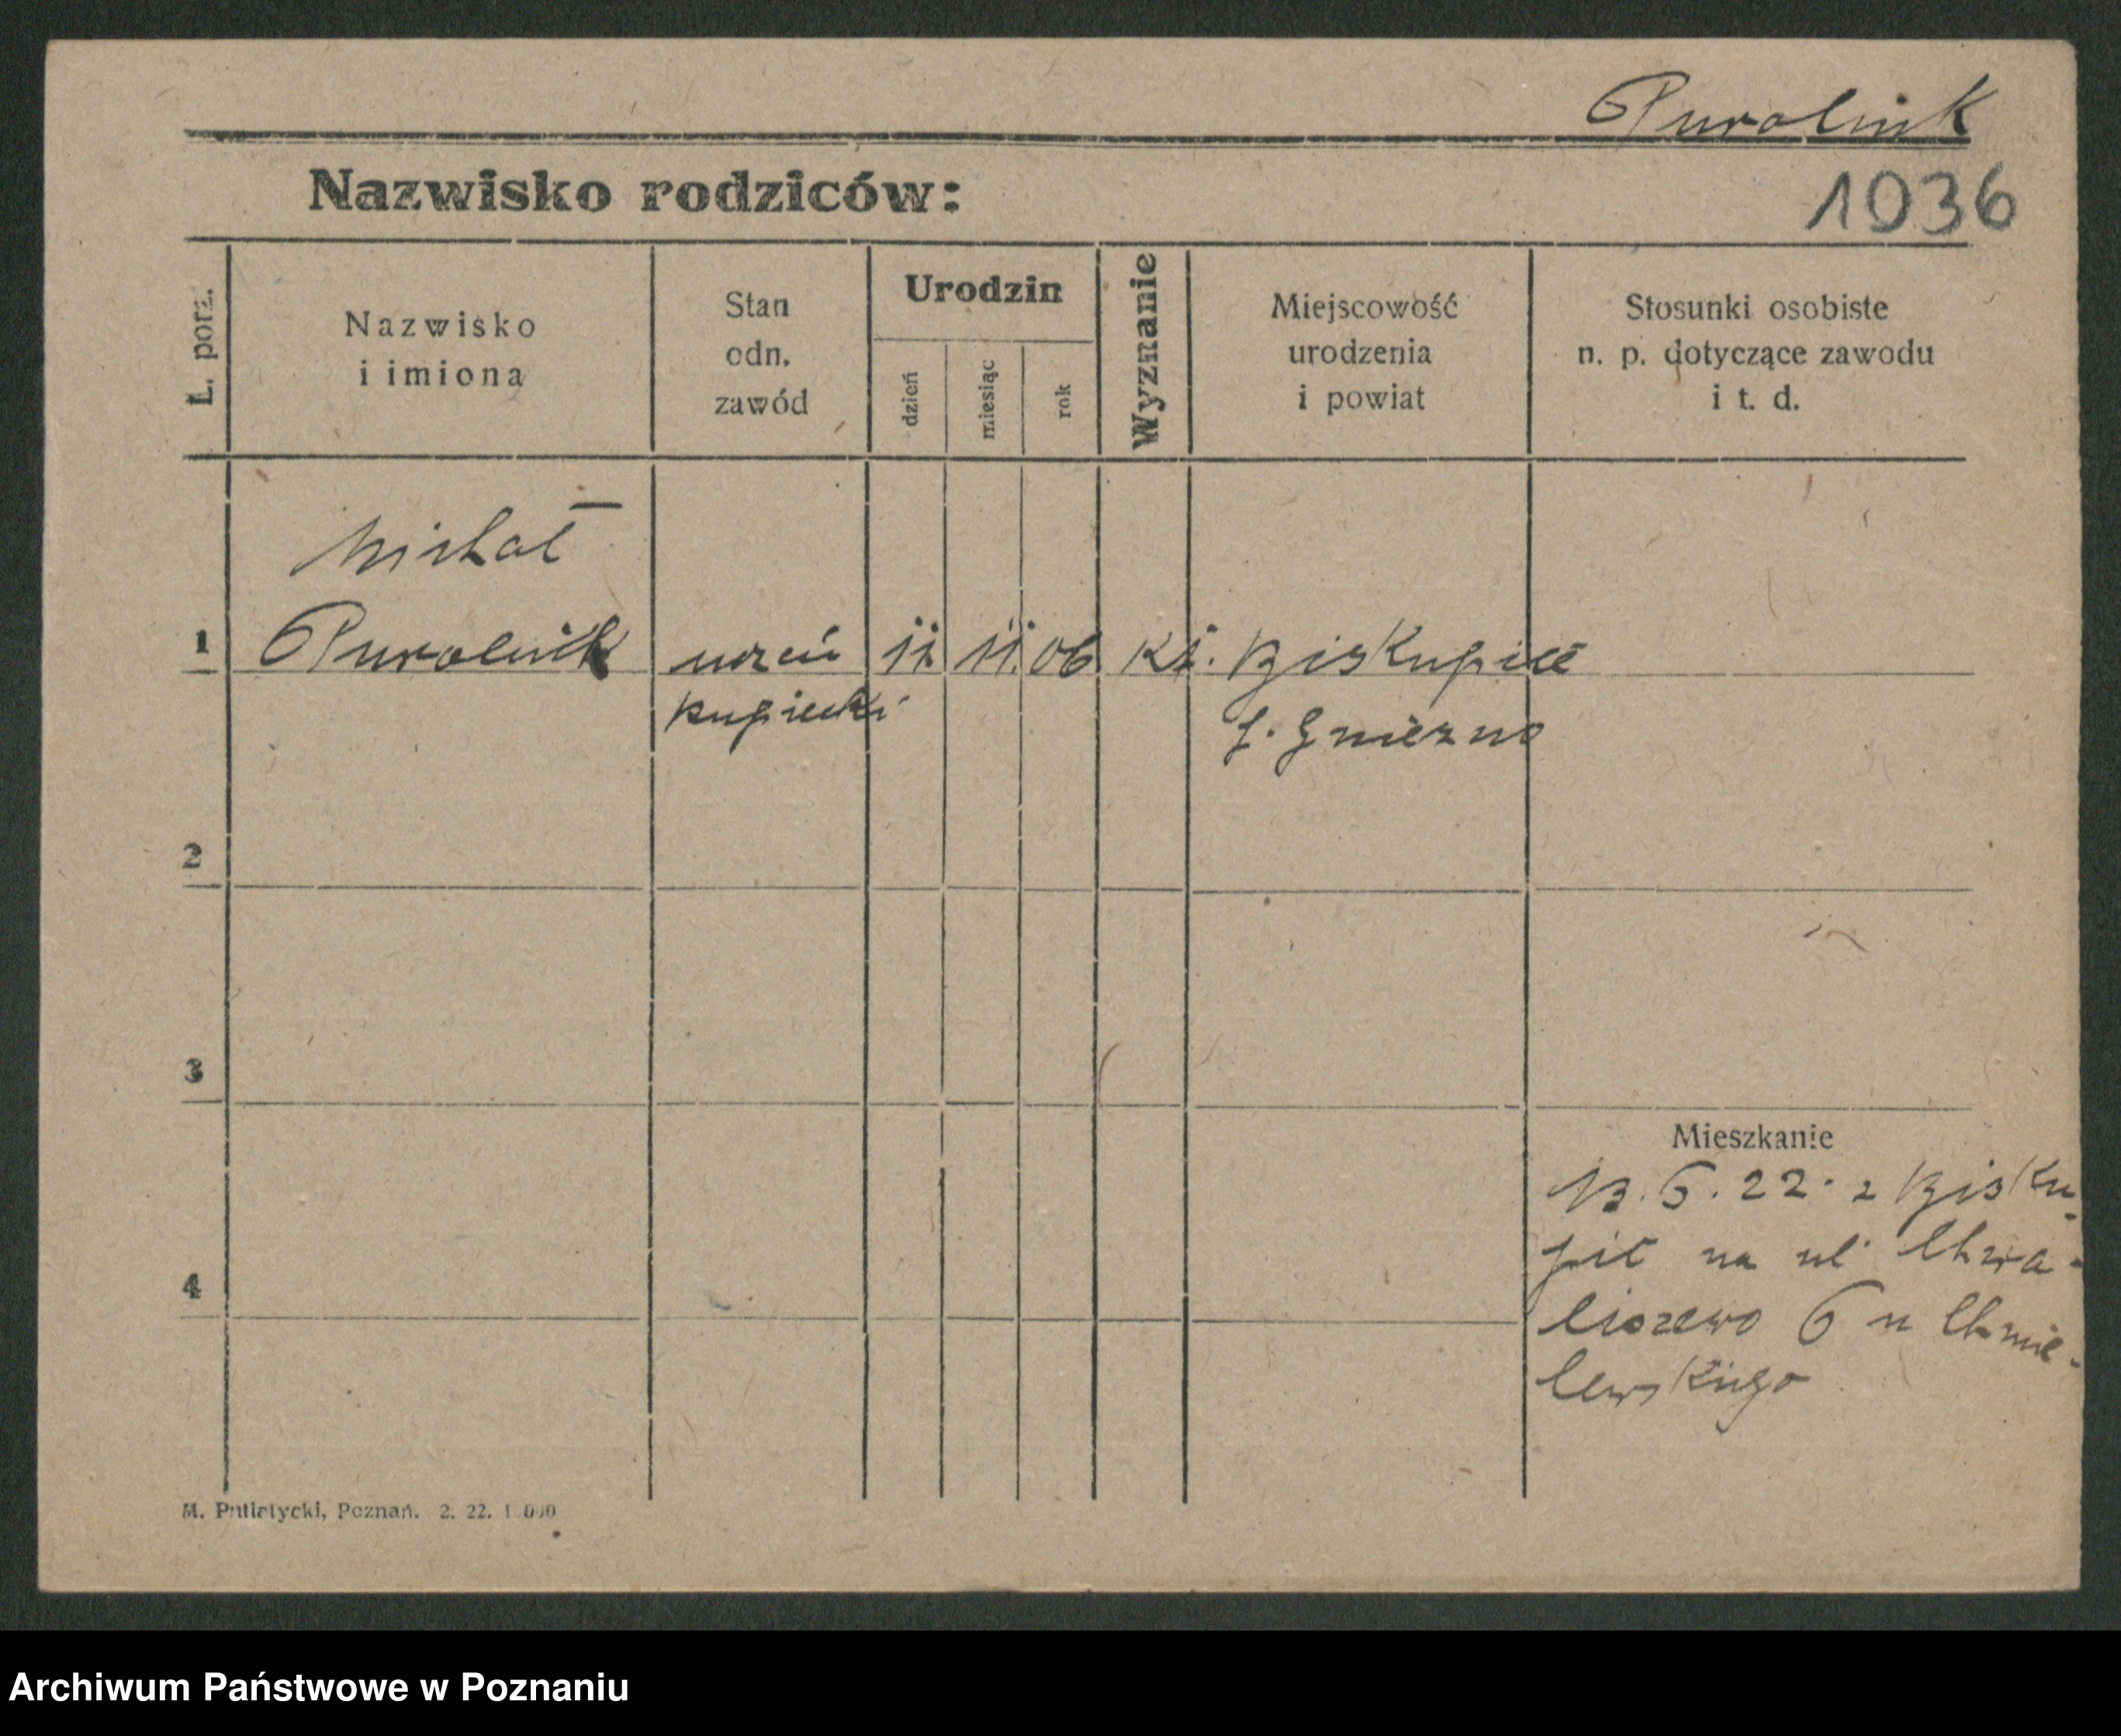 Purolnik
Nazwisko rodziców:
1036
L. porz.
Nazwisko
i imiona
Stan
odn.
zawód
Urodzin
dzień
miesiąc
rok
Wyznanie
Miejscowość
urodzenia
i powiat
Stosunki osobiste
n. p. dotyczące zawodu
i t. d.
Michał
1 Purolnik uczeń 11. 11. 06 kt. Biskupice
kupiecki p. Gniezno
2
3
Mieszkanie
13. 6. 22. z Bisku-
pic na ul Chwa-
4
liszewo 6 u Chmie-
lewskiego
M. Putiatycki, Poznań. 2. 22. 1.000
Archiwum Państwowe w Poznaniu